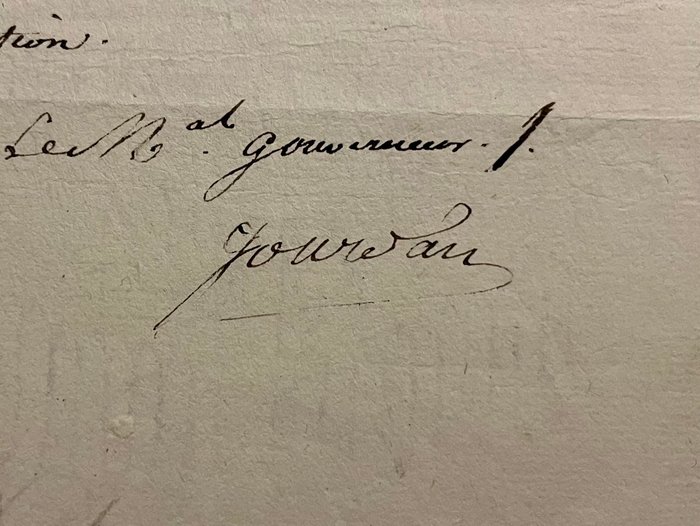 tion.
Le M.al Gouverneur. /.
Jourdan